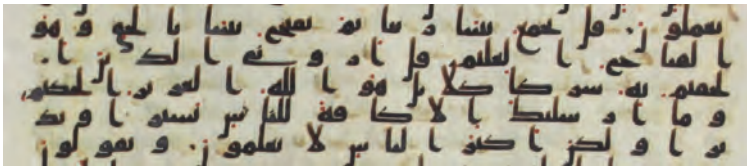 تعملون قل يجمع بيننا ربنا ثم يفتح بيننا بالحق وهو
الفتاح العليم قل اروني الذين ا
لحقتم به شركا كلا بل هو الله العزيز الحكيم
وما ارسلنك الا كافة للناس بشيرا ونذ
يرا ولكن اكثر الناس لا يعلمون ويقولون